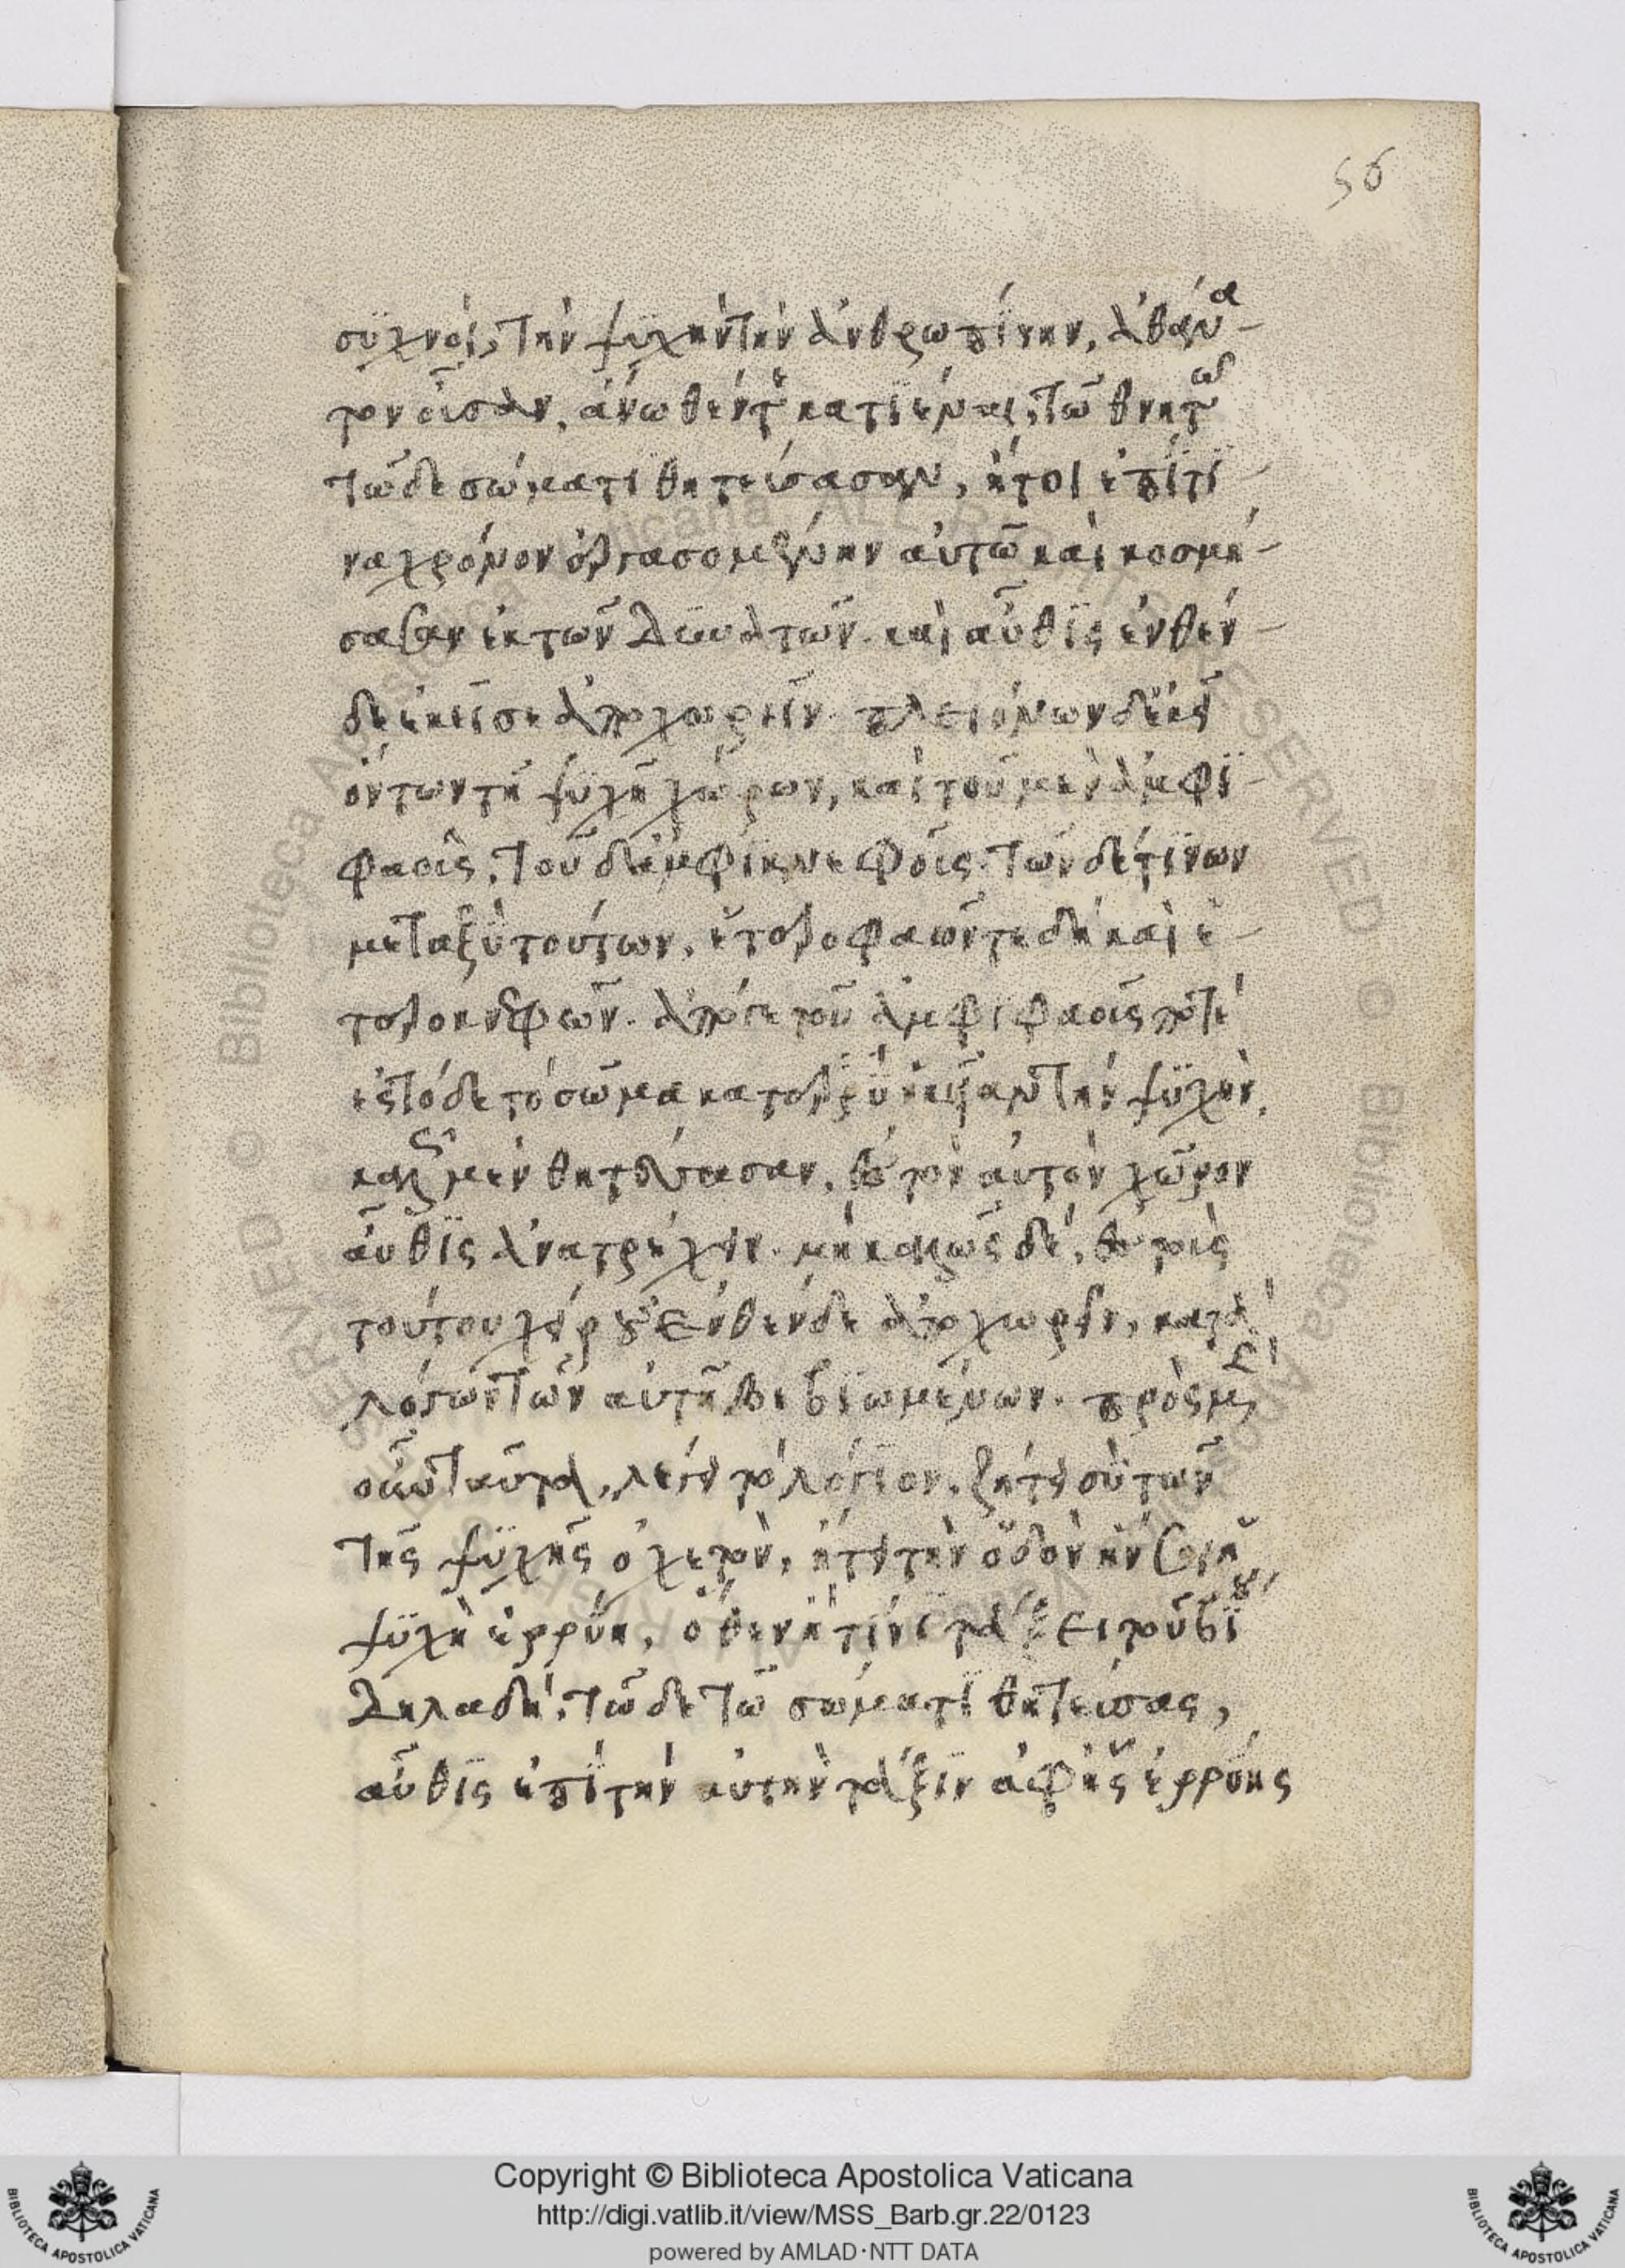 56
συχνοὶ, τὴν ψυχὴν τὴν ἀνθρωπίνην, ἀθάνα-
τον οὖσαν, ἄνωθέν τε κατιέναι, τῷ θνητῷ
τῷδε σώματι θητεύσασαν, ἤτοι ἐπί τι-
να χρόνον ἐργασομένην αὐτῷ καὶ κοσμή-
σασαν ἐκ τῶν δυνατῶν. καὶ αὖθις ἐνθέν-
δε ἐκεῖσε ἀποχωρεῖν. πλειόνων δὲ ἐκεῖ
ὄντων τῇ ψυχῇ χώρων, καὶ τοῦ μὲν ἀμφι-
φαοῦς, τοῦ δὲ ἀμφικνεφοῦς, τῶν δέ τινων
μεταξὺ τούτων, ἑτεροφαῶν τε δὴ καὶ ἑ-
τεροκνεφῶν. ἀπό τε τοῦ ἀμφιφαοῦς ποτε
ἐς τόδε τὸ σῶμα κατερρυηκυῖαν τὴν ψυχὴν,
καλῶς μὲν θητεύσασαν, ἐς τὸν αὐτὸν χῶρον
αὖθις ἀνατρέχειν. μὴ καλῶς δὲ, ἐς τοὺς
τούτου χείρους ἐνθένδε ἀποχωρεῖν, κατὰ
λόγον τῶν αὐτῇ βεβιωμένων. πρὸς μὲν
οὖν ταῦτα, λέγει τὸ λόγιον. ζήτει σὺ τὸν
τῆς ψυχῆς ὀχετὸν, ἤτοι τὴν ὁδὸν ἣν σοι ἡ
ψυχὴ ἐρρύη, ὅθεν ἢ τίνι τάξει τοῦ βίου
δηλαδή, τῷδε τῷ σώματι θητεύσας,
αὖθις ἐπὶ τὴν αὐτὴν τάξιν ἀφ' ἧς ἐρρύης
Copyright © Biblioteca Apostolica Vaticana
http://digi.vatlib.it/view/MSS_Barb.gr.22/0123
powered by AMLAD·NTT DATA